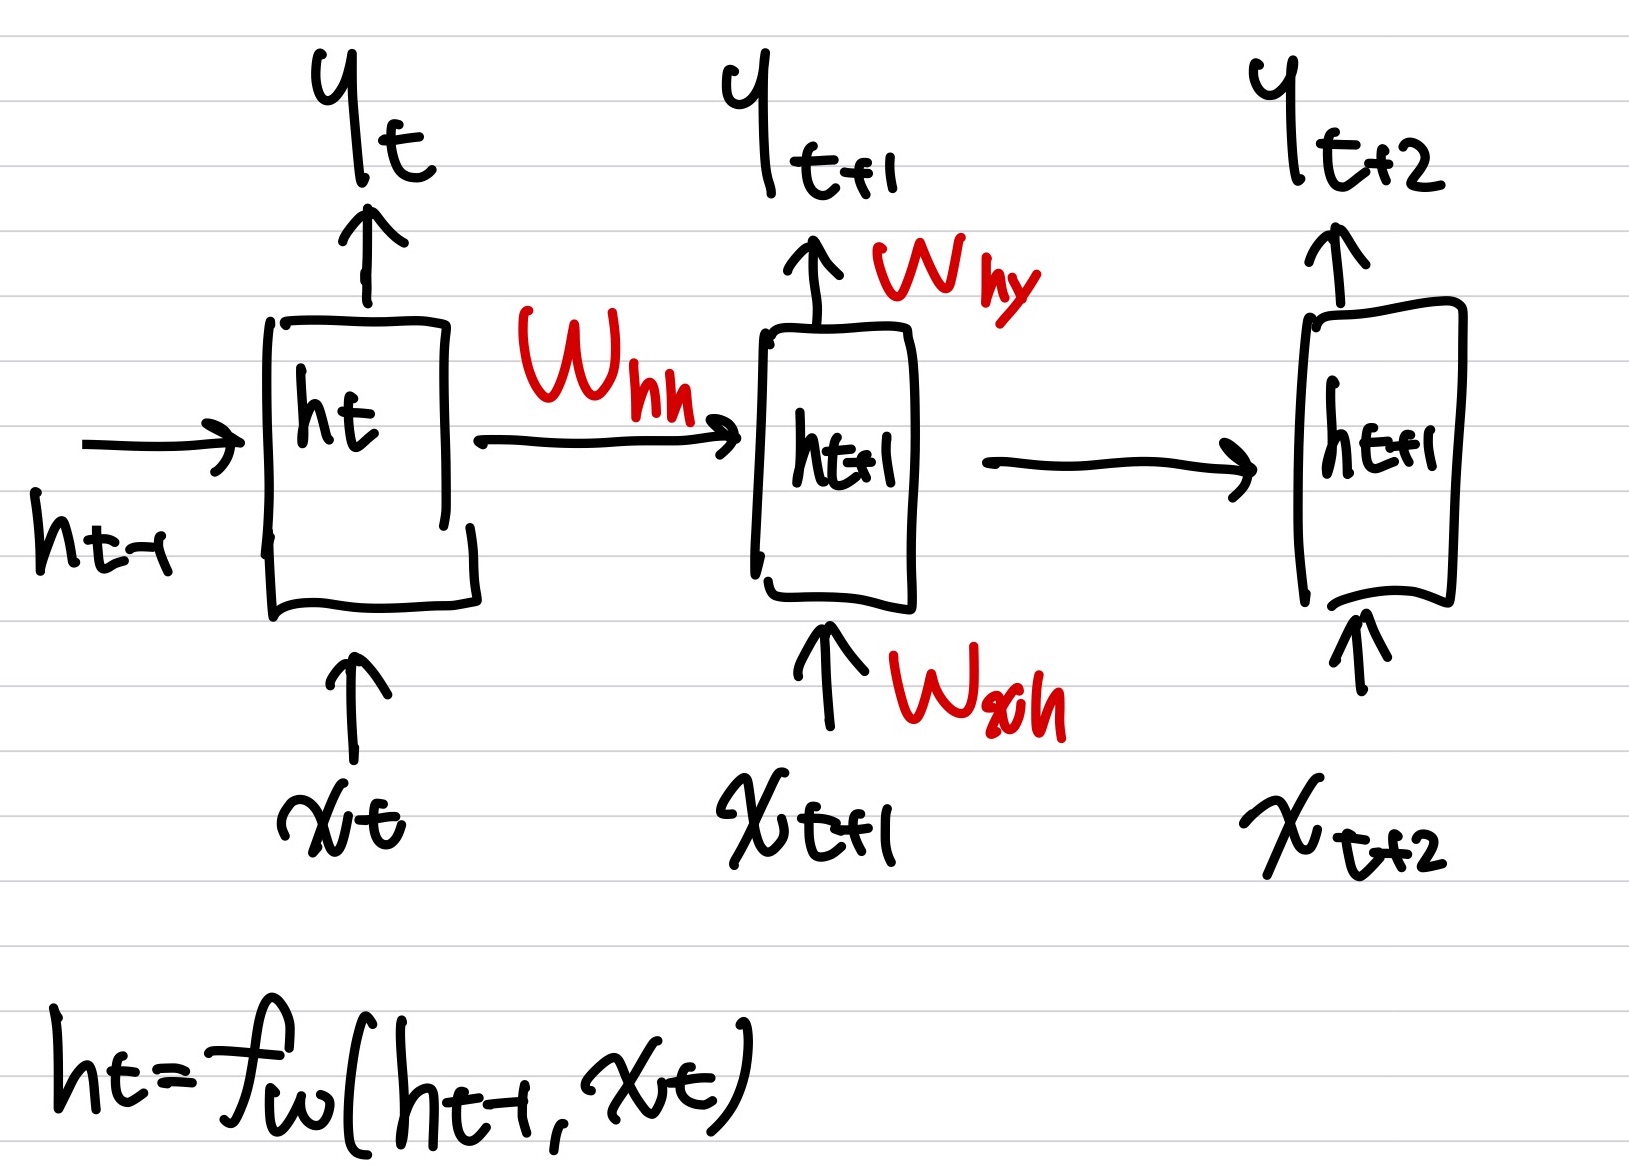 y_t y_{t+1} y_{t+2}
W_{hh} W_{hy}
h_{t-1} h_t h_{t+1} h_{t+1}
W_{xh}
x_t x_{t+1} x_{t+2}
h_t = f_w(h_{t-1}, x_t)